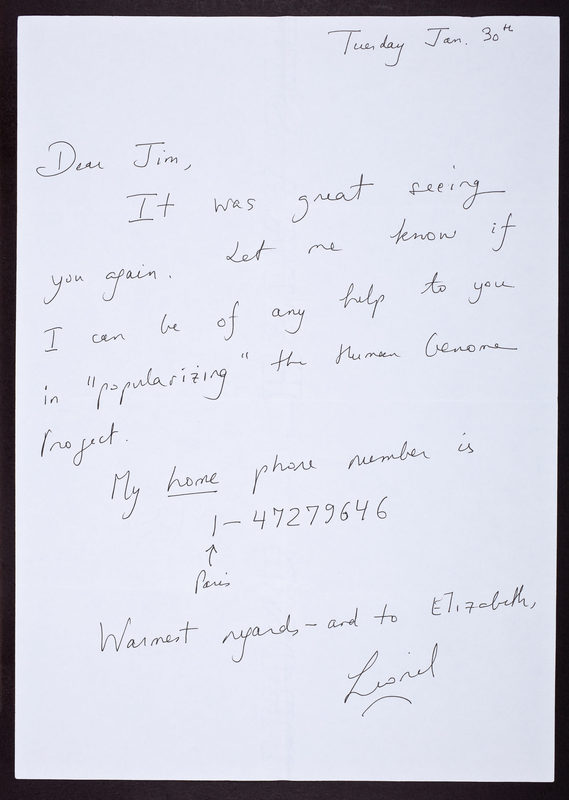 Tuesday Jan. 30th
Dear Jim,
It was great seeing
you again. Let me know if
I can be of any help to you
in "popularizing" the Human Genome
Project.
My home phone number is
1-47279646
↑
Paris
Warmest regards - and to Elizabeth,
Lionel